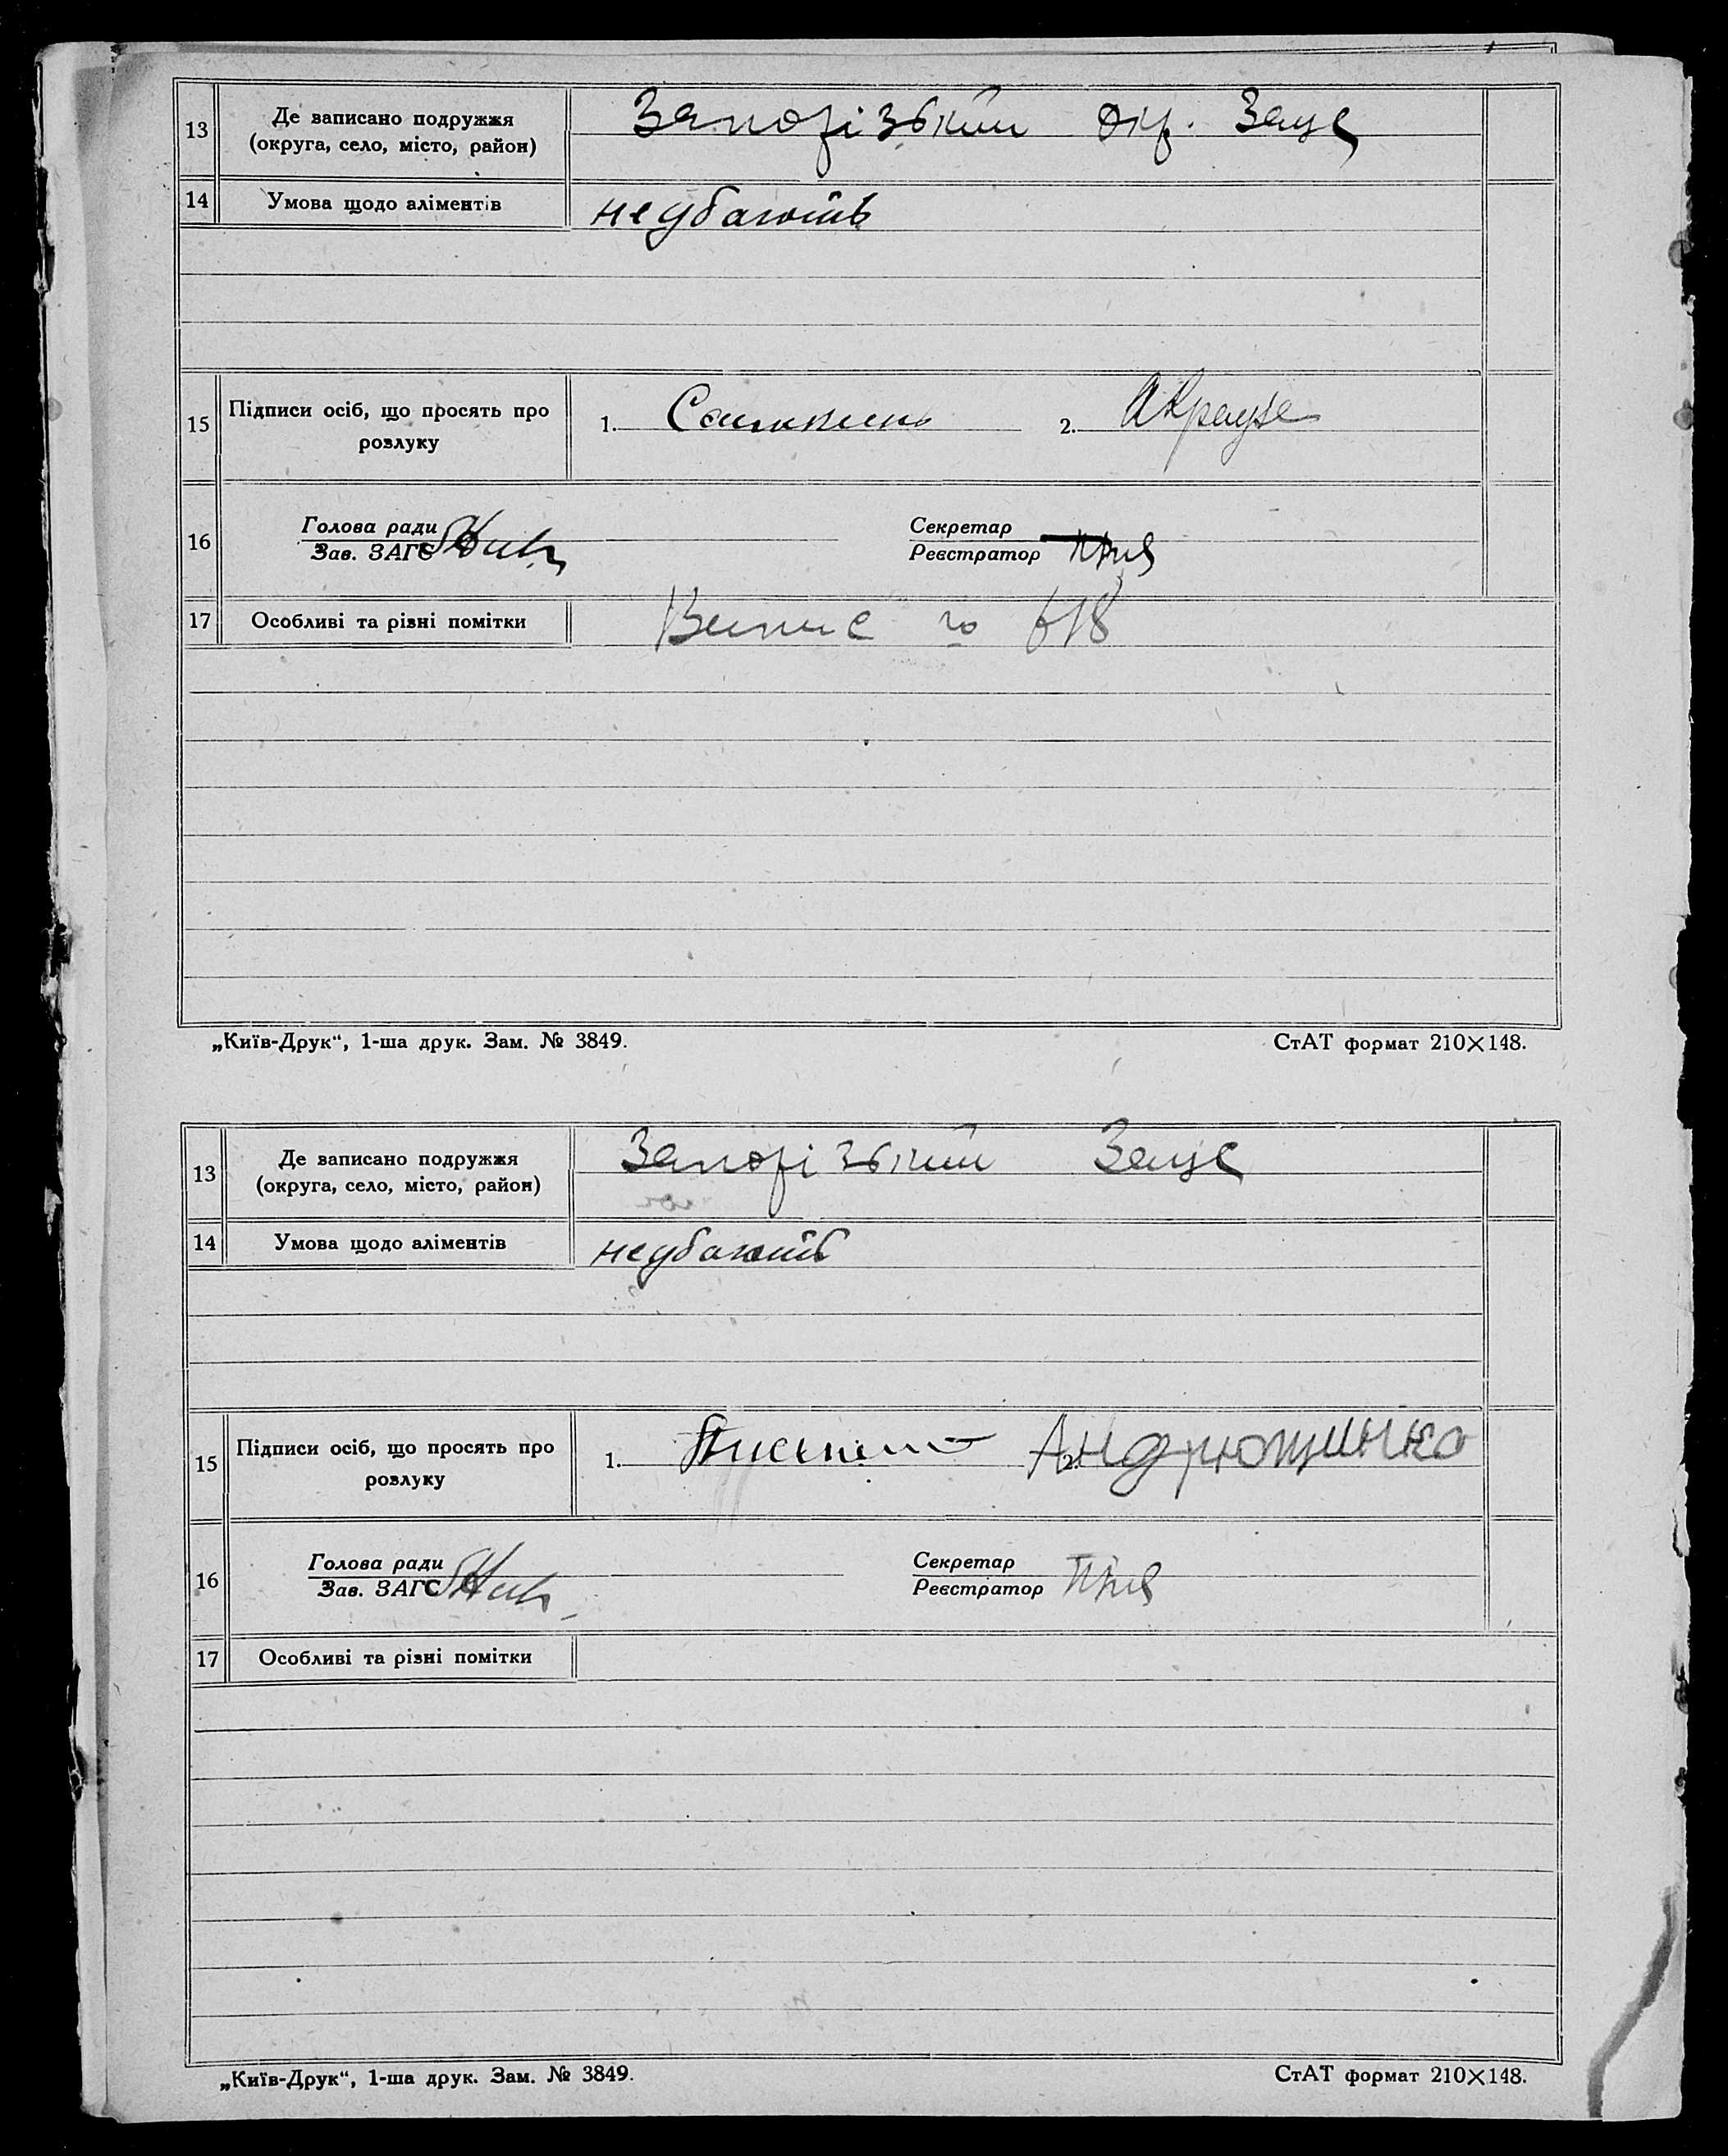 13 Де записано подружжя
(округа, село, місто, район)
Запорізький окр. Загс
14 Умова щодо аліментів
неубають
15 Підписи осіб, що просять про
розлуку
1. 2. АКраузе
16 Голова ради
Зав. ЗАГС
Секретар
Реєстратор
17 Особливі та різні помітки
Випис 618
„Київ-Друк“, 1-ша друк. Зам. № 3849.
СтАТ формат 210×148.
13 Де записано подружжя
(округа, село, місто, район)
Запорізький Загс
14 Умова щодо аліментів
неубають
15 Підписи осіб, що просять про
розлуку
1. 2. Андрющинко
16 Голова ради
Зав. ЗАГС
Секретар
Реєстратор
17 Особливі та різні помітки
„Київ-Друк“, 1-ша друк. Зам. № 3849.
СтАТ формат 210×148.